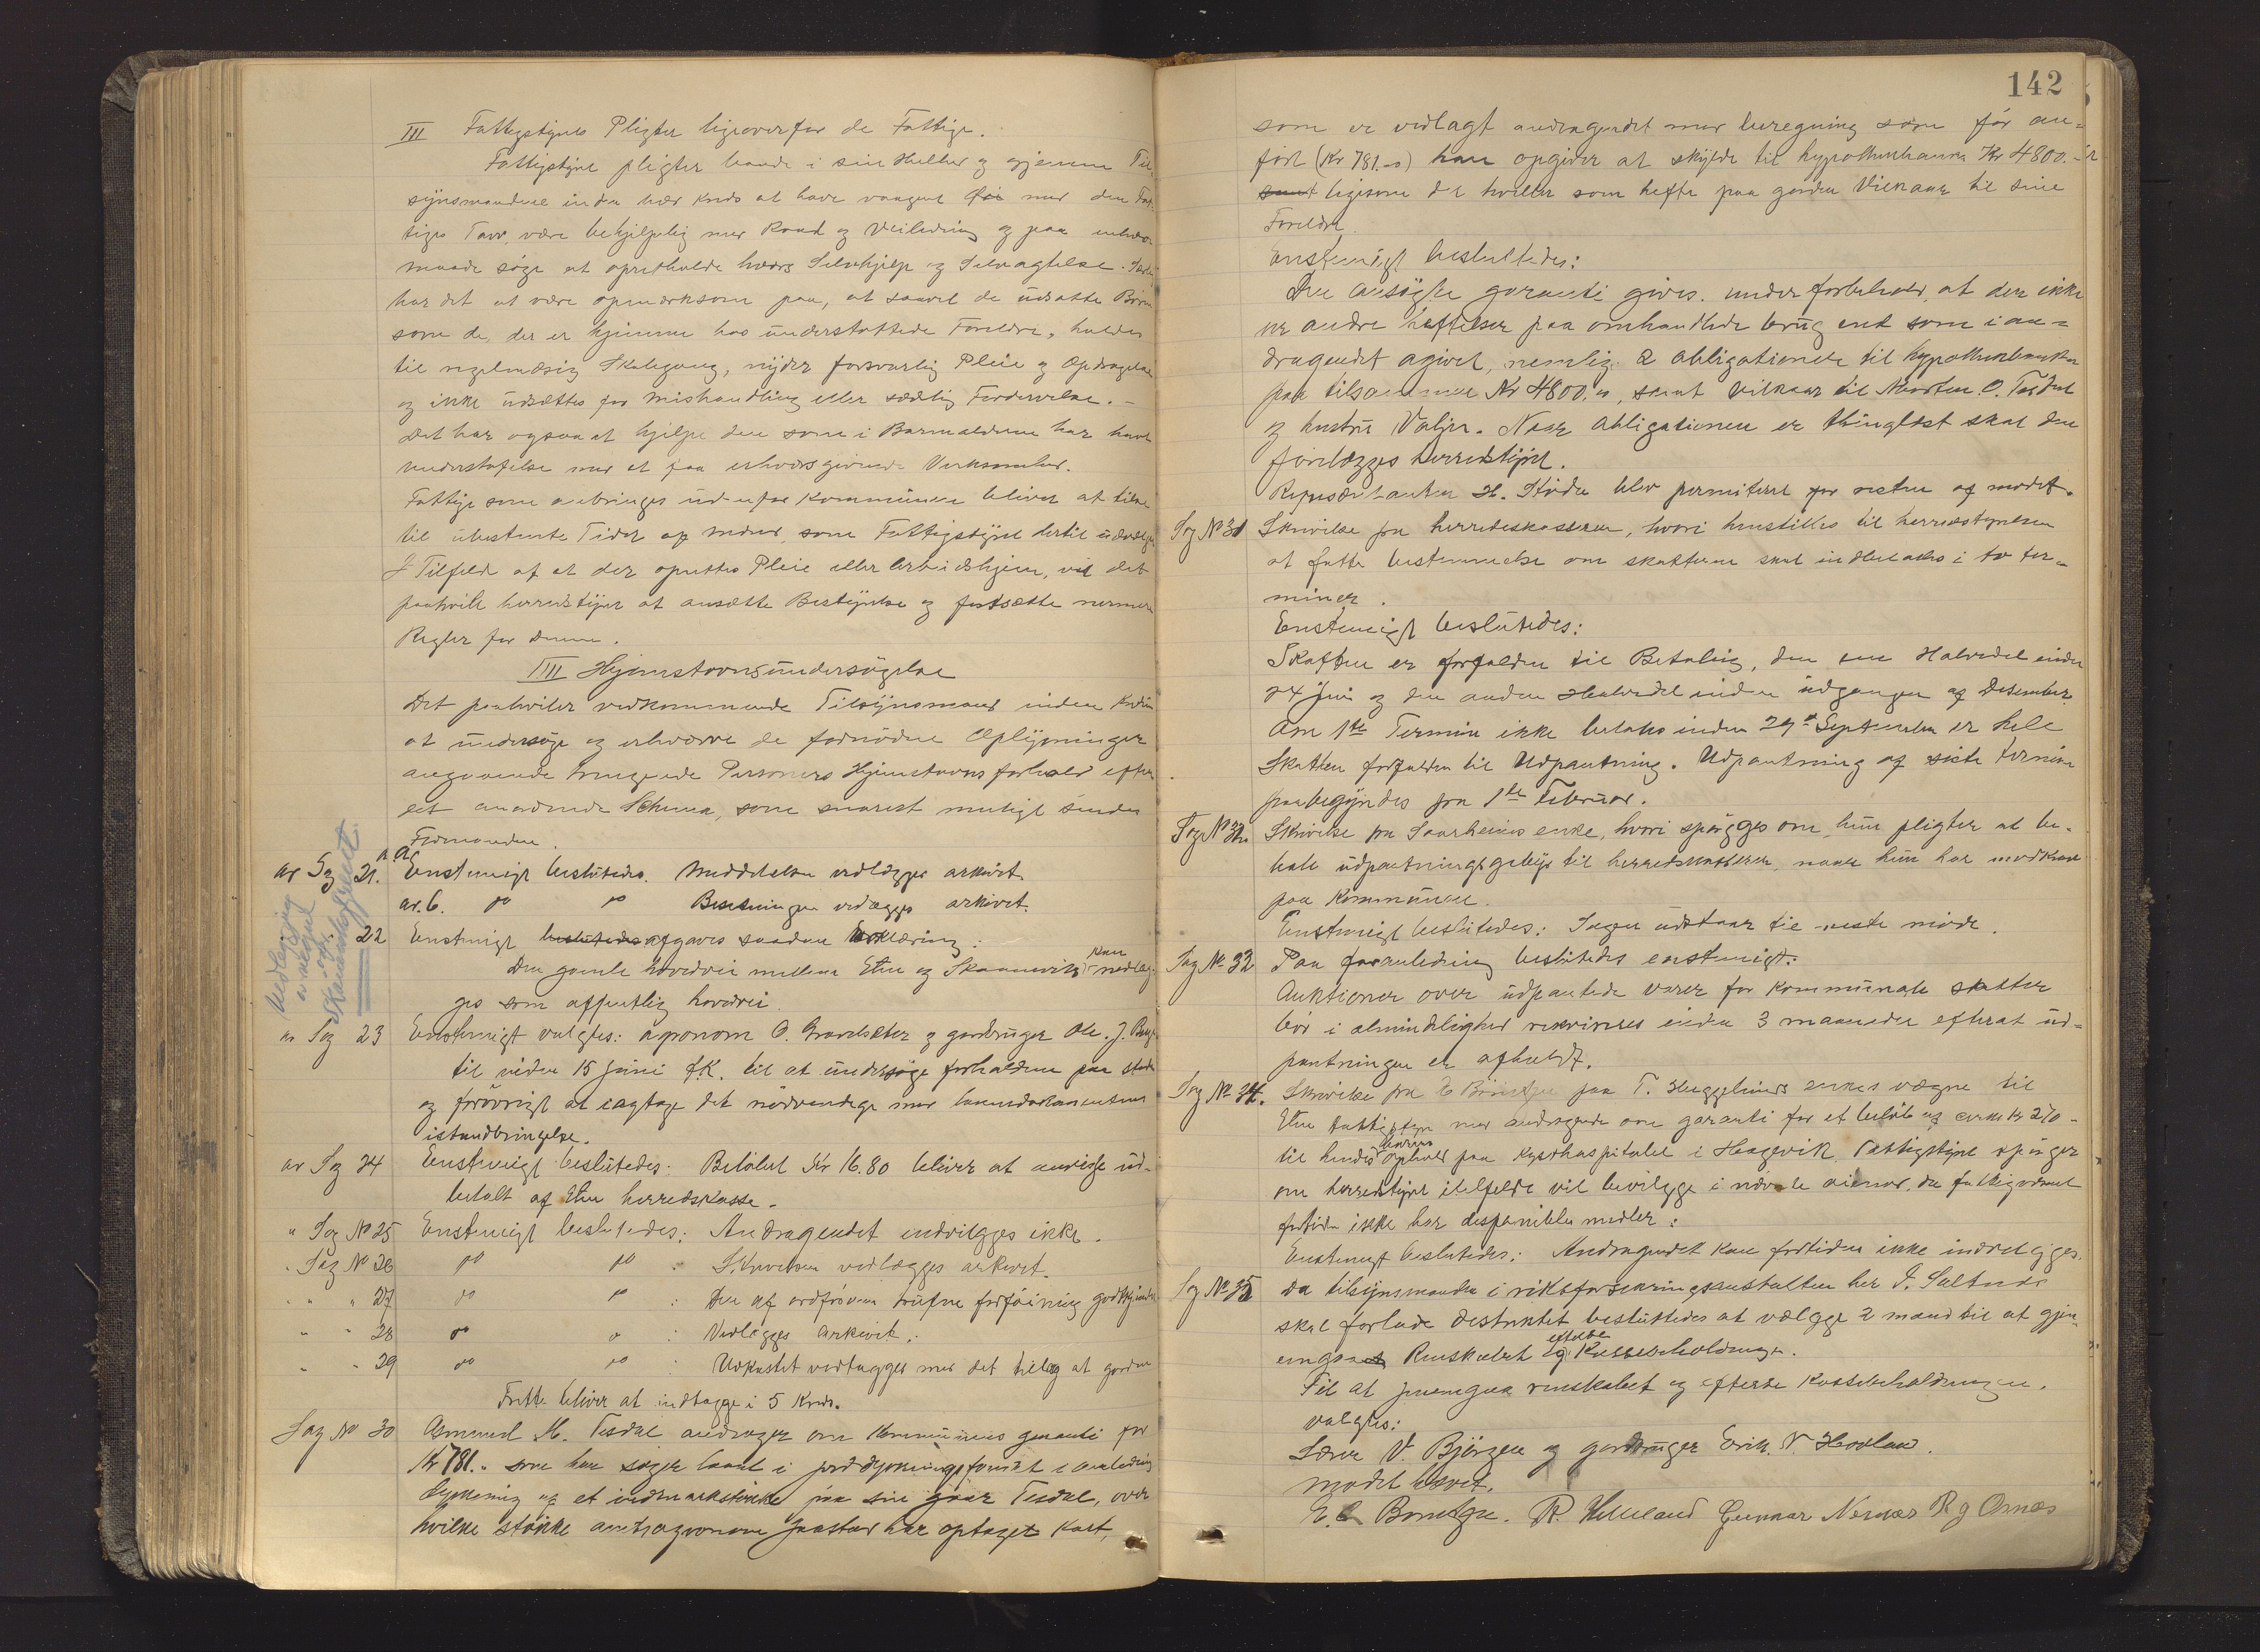 III Fattigstyres Pligter ligeoverfor de Fattige.
Fattigstyre pligter baade i sin Helhed og gjennem Til-
synsmændene inden hver Kreds at have vaagent mer den Fat-
tiges Tarv, være behjelpelig mer Raad og Veiledning og paa enhver
maade søge at opretholde hvers Selvhjelp og Selvagtelse.
har det at være opmerksom paa, at saavel de udsatte Børn
som de, der er hjemme hos understøttede Foreldre, holdes
til regelmæsig Skolegang, nyder forsvarlig Pleie og Opdragelse
og ikke udsættes for Mishandling eller sædelig Fordervelse. -
Det har ogsaa at hjelpe dem som i Barnealderen har havt
understøttelse mer at faa erhvervsgivende Virksomhed.
Fattige som anbringes udenfor Kommunen bliver at tilse
til ubestemte Tider af mænd, som Fattigstyret dertil
I Tilfelde af at der oprettes Pleie eller Arbeidshjem, vil det
paahvile herredstyret at ansætte Bestyrelse og fastsætte nærmere
Regler for denne.
IIII Hjemstavnsundersøgelse
Det paahviler vedkommende Tilsynsmand inden Kredsen
at undersøge og erhverve de fornødne Oplysninger
angaaende trængende Personers Hjemstavnsforhold efter
et anordnede Schema, som snarest muligt sendes
Formanden.
Nedleggjing av vegen Skaanevik
ar Sag 21. a. Enstemigt beslutedes. Meddelelsen vedlægges arkivet.
ar. b. " " vedlægges arkivet.
22 Enstemigt beslutedes afgaves saadan Erklæring:
Den gamle hovedvei mellem Etne og Skaanevik kan nedlæg-
ges som offentlig hovedvei.
ar Sag 23 Enstemigt valgtes: agronom O. Grindheim og gardbruger Ole. J.
til inden 15 juni f.K. til at undersøge forholdene paa stedet
og forøvrigt at iagttage det nødvendige mer
istandbringelse.
ar Sag 24 Enstemigt beslutedes: Beløbet Kr 16.80 bliver at anvise ud-
betalt af Etne herredskasse.
" Sag No 25 Enstemigt beslutedes: Andragendet indvilges ikke.
" Sag No 26 " " : Skrivelsen vedlægges arkivet.
" " 27 " " : Den af ordføreren trufne forføining godkjendes
" " 28 " " : Vedlægges arkivet.
" " 29 " " : Udkastet vedtagges mer det tillæg at garden
Fitte bliver at indtagge i 5 Kreds.
Sag No 30 Asmund M. Tesdal andrager om Kommunens garanti for
Kr 781.- som han søger laant i jorddyrkningsfondet i anledning
dyrkning af et indmarkstykke paa sin gaar Tesdal, over
hvilke stykke amtsagronom Jaastad har optaget Kart,
142
som er vedlagt andragendet mer beregning som før an-
ført (Kr 781.-) han opgiver at skylde til hypothekbanken Kr 4800.-
samt ligesom der hviler som hefte paa garden Vilkaar til sine
Foreldre.
Enstemigt beslutedes:
Den ansøgte garanti gives under forbehold, at der ikke
er andre heftelser paa omhandlede brug end som i an-
dragendet agivet, nemlig 2 obligationer til hypothekbanken
paa tilsammen Kr 4800.-, samt vilkaar til Morten O. Tesdal
og hustru Valjer. Naar obligationen er thinglæst skal den
forelægges herredstyret.
Representanten H. Støde blev permiteret for resten af mødet.
Sag No 31 Skrivelse fra herredskassereren, hvori henstilles til herredsstyrelsen
at fatte bestemmelse om skatterne skal indbetales i to ter-
miner.
Enstemigt beslutedes:
Skatten er forfalden til Betaling, den ene Halvdel inden
24 juni og den anden Halvdel inden udgangen af Desember.
Om 1ste Termin ikke betales inden 29de September er hele
Skatten forfalden til Udpantning. Udpantning af siste termin
paabegyndes fra 1ste Februar.
Sag No 32 Skrivelse fra Saarheims enke, hvori spørgges om hun pligter at be-
tale udpantningsgebyr til herredskassereren, naar hun har modkrav
paa Kommunen.
Enstemigt beslutedes: Sagen udstaar til neste møde.
Sag No 33 Paa foranledning beslutedes enstemigt:
Auktioner over udpantede varer for Kommunale skatter
bør i almindelighed rekvireres inden 3 maaneder efterat ud-
pantningen er afholdt.
Sag No 34. Skrivelse fra E Børretzen paa T. Heggheims enkes vegne til
Etne fattigstyre mer andragende om garanti for et beløb af cirka kr 270-
til hendes barns ophold paa Kysthospitalet i Hagevik. Fattigstyret spørger
om herredstyret itilfelde vil bevilgge i nævnte øiemed, da fattigvæsenet
fortiden ikke har disponible midler:
Enstemigt beslutedes: Andragendet kan fortiden ikke indvilgges.
Sag No 35 Da tilsynsmanden i riksforsikringsanstalten her P. Saltnes
skal forlade distriktet besluttedes at vælgge 2 mand til at gjen-
emgaa Renskabet og efterse Kassebeholdningen.
Til at gjenemgaa renskabet og efterse kassebeholdningen
valgtes:
Lærer V. Bjørgen og gardbruger Erik. N. Hovland.
Mødet hævet.
E. Børretzen. R. Helleland Gunnar Nernæs R G Ornes